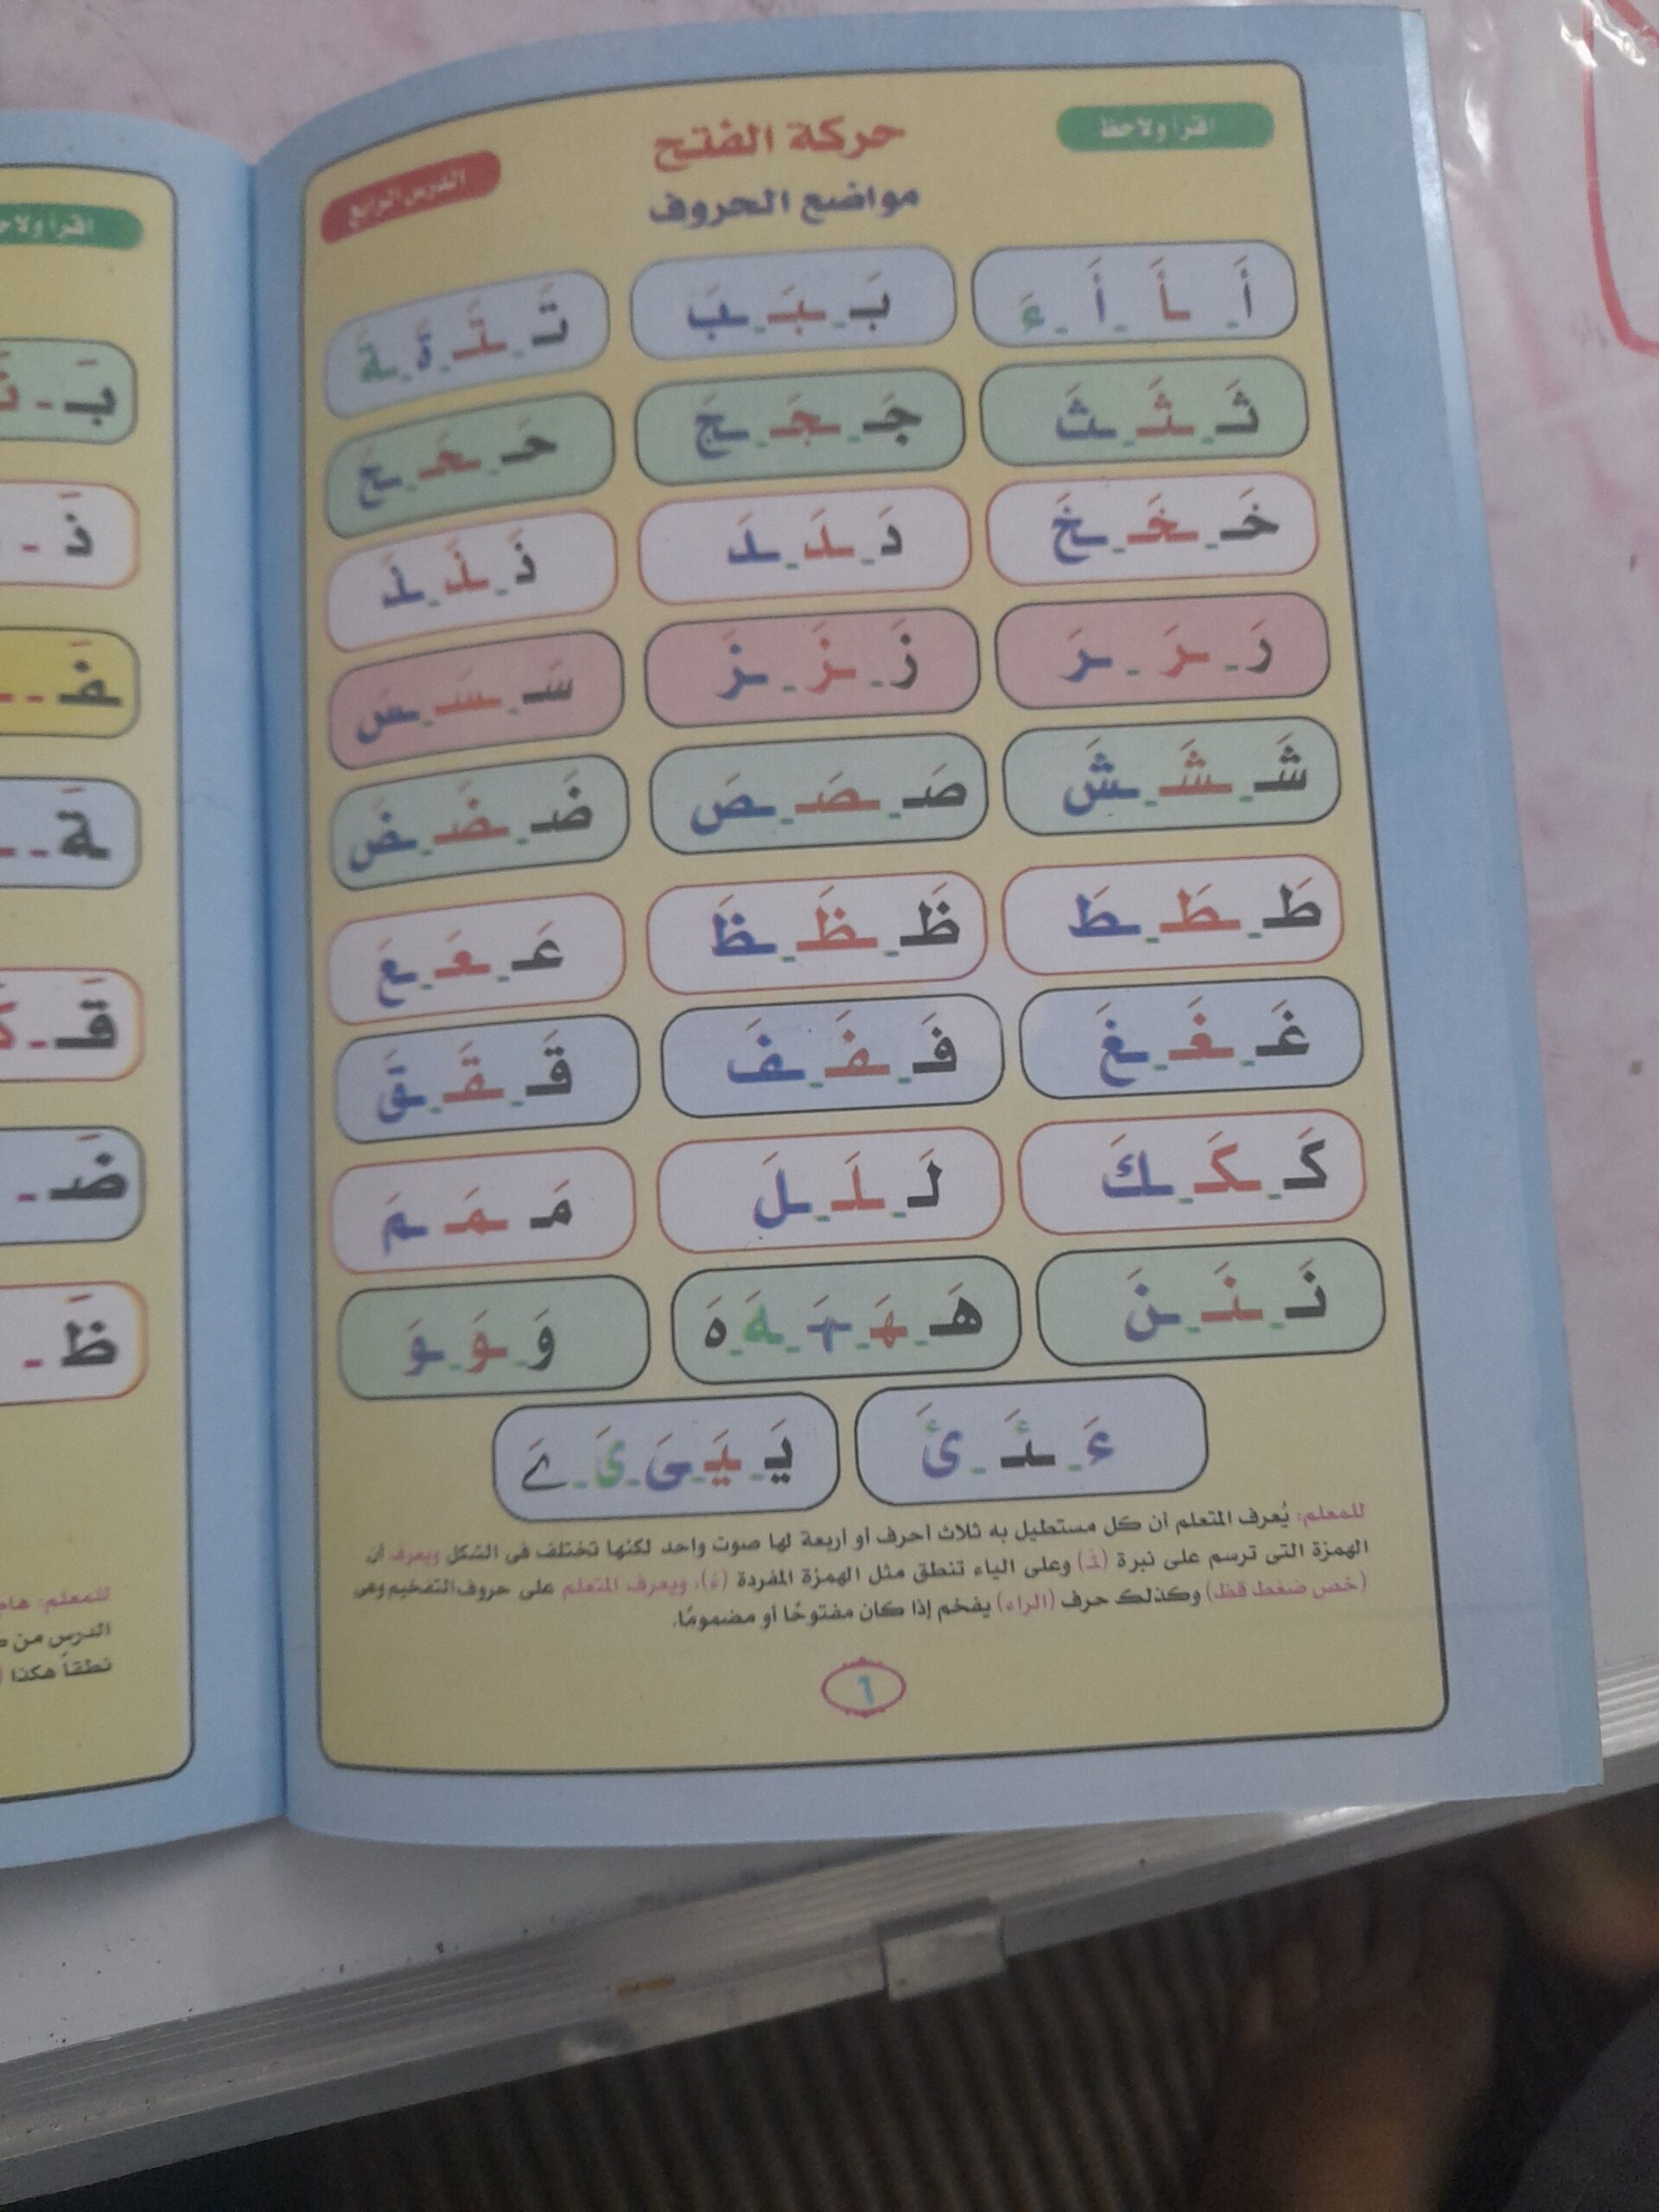 اقرأ ولاحظ
حركة الفتح
الدرس الرابع
مواضع الحروف
أَ - ـأَ أَ - ءَ
بَـ - ـبَـ - ـبَ
تَـ - ـتَـ - ةَ - ـةَ
ثَـ - ـثَـ - ـثَ
جَـ - ـجَـ - ـجَ
حَـ - ـحَـ - ـحَ
خَـ - ـخَـ - ـخَ
دَ - ـدَ - ـدَ
ذَ - ـذَ - ـذَ
رَ - ـرَ - ـرَ
زَ - ـزَ - ـزَ
سَـ - ـسَـ - ـسَ
شَـ - ـشَـ - ـشَ
صَـ - ـصَـ - ـصَ
ضَـ - ـضَـ - ـضَ
طَـ - ـطَـ - ـطَ
ظَـ - ـظَـ - ـظَ
عَـ - ـعَـ - ـعَ
غَـ - ـغَـ - ـغَ
فَـ - ـفَـ - ـفَ
قَـ - ـقَـ - ـقَ
كَـ - ـكَـ - ـكَ
لَـ - ـلَـ - ـلَ
مَـ ـمَـ ـمَ
نَـ - ـنَـ - ـنَ
هَـ - ـهَـ - ـهَـ - ـهَ - هَ
وَ - ـوَ - ـوَ
ءَ - ـئَـ - ئَ
يَـ - ـيَـ - ـىَ - ىَ - ےَ
للمعلم: يُعرف المتعلم أن كل مستطيل به ثلاث أحرف أو أربعة لها صوت واحد لكنها تختلف فى الشكل ويعرف أن
الهمزة التى ترسم على نبرة (ئَـ) وعلى الياء تنطق مثل الهمزة المفردة (ءَ)، ويعرف المتعلم على حروف التفخيم وهى
(خص ضغط قظ) وكذلك حرف (الراء) يفخم إذا كان مفتوحًا أو مضمومًا.
٦
بَـ -
ذَ -
فَـ - -
ـةَ - -
قَـ -
ضَـ -
ظَـ -
للمعلم:
الدرس من
نطقاً هكذا